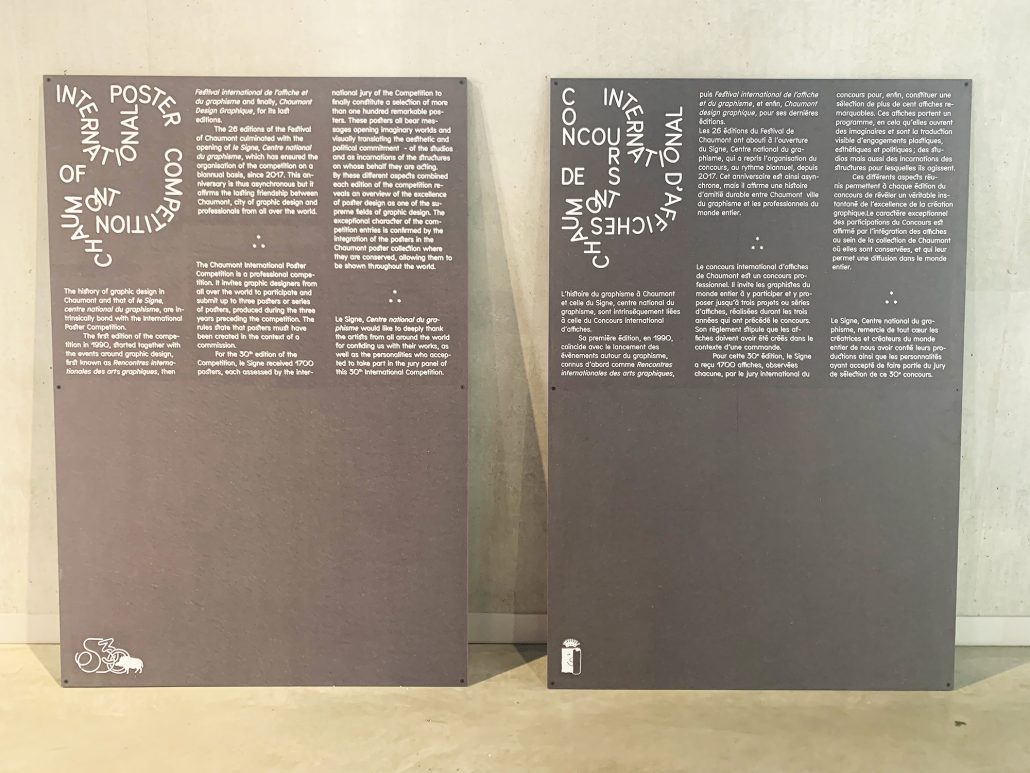 INTERNATIONAL POSTER
COMPETITION
OF
CHAUMONT
The history of graphic design in
Chaumont and that of le Signe,
centre national du graphisme, are in-
trinsically bond with the International
Poster Competition.
The first edition of the compe-
tition in 1990, started together with
the events around graphic design,
first known as Rencontres interna-
tionales des arts graphiques, then
Festival international de l'affiche et
du graphisme and finally, Chaumont
Design Graphique, for its last
editions.
The 26 editions of the Festival
of Chaumont culminated with the
opening of le Signe, Centre national
du graphisme, which has ensured the
organisation of the competition on a
biannual basis, since 2017. This an-
niversary is thus asynchronous but it
affirms the lasting friendship between
Chaumont, city of graphic design and
professionals from all over the world.
The Chaumont International Poster
Competition is a professional compe-
tition. It invites graphic designers from
all over the world to participate and
submit up to three posters or series
of posters, produced during the three
years preceding the competition. The
rules state that posters must have
been created in the context of a
commission.
For the 30th edition of the
Competition, le Signe received 1700
posters, each assessed by the inter-
national jury of the Competition to
finally constitute a selection of more
than one hundred remarkable pos-
ters. These posters all bear mes-
sages opening imaginary worlds and
visually translating the aesthetic and
political commitment - of the studios
and as incarnations of the structures
on whose behalf they are acting.
By these different aspects combined
each edition of the competition re-
veals an overview of the excellence
of poster design as one of the su-
preme fields of graphic design. The
exceptional character of the com-
petition entries is confirmed by the
integration of the posters in the
Chaumont poster collection where
they are conserved, allowing them to
be shown throughout the world.
Le Signe, Centre national du gra-
phisme would like to deeply thank
the artists from all around the world
for confiding us with their works, as
well as the personalities who accep-
ted to take part in the jury panel of
this 30th International Competition.
CONCOURS
INTERNATIONAL
D'AFFICHES
DE
CHAUMONT
L'histoire du graphisme à Chaumont
et celle du Signe, centre national du
graphisme, sont intrinsèquement liées
à celle du Concours international
d'affiches.
Sa première édition, en 1990,
coïncide avec le lancement des
événements autour du graphisme,
connus d'abord comme Rencontres
internationales des arts graphiques,
puis Festival international de l'affiche
et du graphisme, et enfin, Chaumont
design graphique, pour ses dernières
éditions.
Les 26 éditions du Festival de
Chaumont ont abouti à l'ouverture
du Signe, Centre national du gra-
phisme, qui a repris l'organisation du
concours, au rythme biannuel, depuis
2017. Cet anniversaire est ainsi asyn-
chrone, mais il affirme une histoire
d'amitié durable entre Chaumont ville
du graphisme et les professionnels du
monde entier.
Le concours international d'affiches
de Chaumont est un concours pro-
fessionnel. Il invite les graphistes du
monde entier à y participer et y pro-
poser jusqu'à trois projets ou séries
d'affiches, réalisées durant les trois
années qui ont précédé le concours.
Son règlement stipule que les af-
fiches doivent avoir été créés dans le
contexte d'une commande.
Pour cette 30e édition, le Signe
a reçu 1700 affiches, observées
chacune, par le jury international du
concours pour, enfin, constituer une
sélection de plus de cent affiches re-
marquables. Ces affiches portent un
programme, en cela qu'elles ouvrent
des imaginaires et sont la traduction
visible d'engagements plastiques,
esthétiques et politiques ; des stu-
dios mais aussi des incarnations des
structures pour lesquelles ils agissent.
Ces différents aspects réu-
nis permettent à chaque édition du
concours de révéler un véritable ins-
tantané de l'excellence de la création
graphique.Le caractère exceptionnel
des participations du Concours est
affirmé par l'intégration des affiches
au sein de la collection de Chaumont
où elles sont conservées, et qui leur
permet une diffusion dans le monde
entier.
Le Signe, Centre national du gra-
phisme, remercie de tout cœur les
créatrices et créateurs du monde
entier de nous avoir confié leurs pro-
ductions ainsi que les personnalités
ayant accepté de faire partie du jury
de sélection de ce 30e concours.